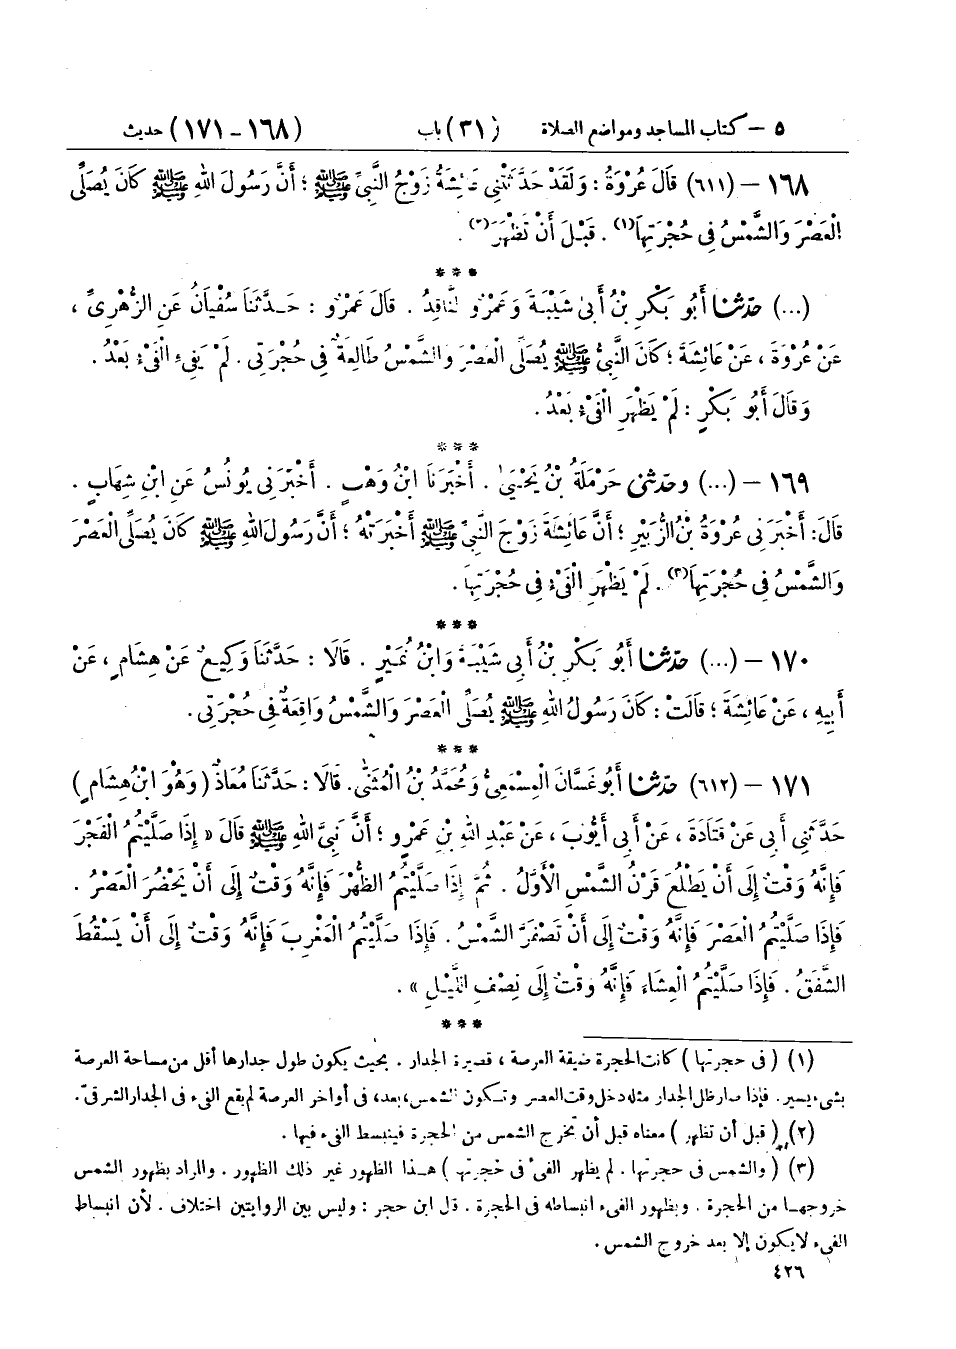 ٥ – كتاب المساجد ومواضع الصلاة (٣١) باب (١٦٨ – ١٧١) حديث
١٦٨ – (٦١١) قَالَ عُرْوَةُ : وَلَقَدْ حَدَّثَتْنِى عَائِشَةُ زَوْجُ النَّبِىِّ ﷺ ؛ أَنَّ رَسُولَ اللهِ ﷺ كَانَ يُصَلِّى
الْعَصْرَ وَالشَّمْسُ فِى حُجْرَتِهَا(١) . قَبْلَ أَنْ تَظْهَرَ(٢) .
***
(...) حَدَّثَنَا أَبُو بَكْرِ بْنُ أَبِى شَيْبَةَ وَعَمْرٌو النَّاقِدُ . قَالَ عَمْرٌو : حَدَّثَنَا سُفْيَانُ عَنِ الزُّهْرِىِّ ،
عَنْ عُرْوَةَ ، عَنْ عَائِشَةَ ؛ كَانَ النَّبِىُّ ﷺ يُصَلِّى الْعَصْرَ وَالشَّمْسُ طَالِعَةٌ فِى حُجْرَتِى . لَمْ يَفِئِ الْفَىْءُ بَعْدُ .
وَقَالَ أَبُو بَكْرٍ : لَمْ يَظْهَرِ الْفَىْءُ بَعْدُ .
***
١٦٩ – (...) وحَدَّثَنِى حَرْمَلَةُ بْنُ يَحْيَىٰ . أَخْبَرَنَا ابْنُ وَهْبٍ . أَخْبَرَنِى يُونُسُ عَنِ ابْنِ شِهَابٍ .
قَالَ : أَخْبَرَنِى عُرْوَةُ بْنُ الزُّبَيْرِ ؛ أَنَّ عَائِشَةَ زَوْجَ النَّبِىِّ ﷺ أَخْبَرَتْهُ ؛ أَنَّ رَسُولَ اللهِ ﷺ كَانَ يُصَلِّى الْعَصْرَ
وَالشَّمْسُ فِى حُجْرَتِهَا(٣) . لَمْ يَظْهَرِ الْفَىْءُ فِى حُجْرَتِهَا .
***
١٧٠ – (...) حَدَّثَنَا أَبُو بَكْرِ بْنُ أَبِى شَيْبَةَ وَابْنُ نُمَيْرٍ . قَالَا : حَدَّثَنَا وَكِيعٌ عَنْ هِشَامٍ ، عَنْ
أَبِيهِ ، عَنْ عَائِشَةَ ؛ قَالَتْ : كَانَ رَسُولُ اللهِ ﷺ يُصَلِّى الْعَصْرَ وَالشَّمْسُ وَاقِعَةٌ فِى حُجْرَتِى .
***
١٧١ – (٦١٢) حَدَّثَنَا أَبُو غَسَّانَ الْمِسْمَعِىُّ وَمُحَمَّدُ بْنُ الْمُثَنَّى . قَالَا : حَدَّثَنَا مُعَاذٌ (وَهُوَ ابْنُ هِشَامٍ)
حَدَّثَنِى أَبِى عَنْ قَتَادَةَ ، عَنْ أَبِى أَيُّوبَ ، عَنْ عَبْدِ اللهِ بْنِ عَمْرٍو ؛ أَنَّ نَبِىَّ اللهِ ﷺ قَالَ « إِذَا صَلَّيْتُمُ الْفَجْرَ
فَإِنَّهُ وَقْتٌ إِلَى أَنْ يَطْلُعَ قَرْنُ الشَّمْسِ الْأَوَّلُ . ثُمَّ إِذَا صَلَّيْتُمُ الظُّهْرَ فَإِنَّهُ وَقْتٌ إِلَى أَنْ يَحْضُرَ الْعَصْرُ .
فَإِذَا صَلَّيْتُمُ الْعَصْرَ فَإِنَّهُ وَقْتٌ إِلَى أَنْ تَصْفَرَّ الشَّمْسُ . فَإِذَا صَلَّيْتُمُ الْمَغْرِبَ فَإِنَّهُ وَقْتٌ إِلَى أَنْ يَسْقُطَ
الشَّفَقُ . فَإِذَا صَلَّيْتُمُ الْعِشَاءَ فَإِنَّهُ وَقْتٌ إِلَى نِصْفِ اللَّيْلِ » .
***
(١) (فى حجرتها) كانت الحجرة ضيقة العرصة ، قصيرة الجدار . بحيث يكون طول جدارها أقل من مساحة العرصة
بشىء يسير . فإذا صار ظل الجدار مثله دخل وقت العصر وتكون الشمس ، بعد ، فى أواخر العرصة لم يقع الفىء فى الجدار الشرقىّ .
(٢) (قبل أن تظهر) معناه قبل أن تخرج الشمس من الحجرة فينبسط الفىء فيها .
(٣) (والشمس فى حجرتها . لم يظهر الفىء فى حجرتها) هـذا الظهور غير ذلك الظهور . والمراد بظهور الشمس
خروجهـا من الحجرة . وبظهور الفىء انبساطه فى الحجرة . قال ابن حجر : وليس بين الروايتين اختلاف . لأن انبساط
الفىء لا يكون إلا بعد خروج الشمس .
٤٢٦